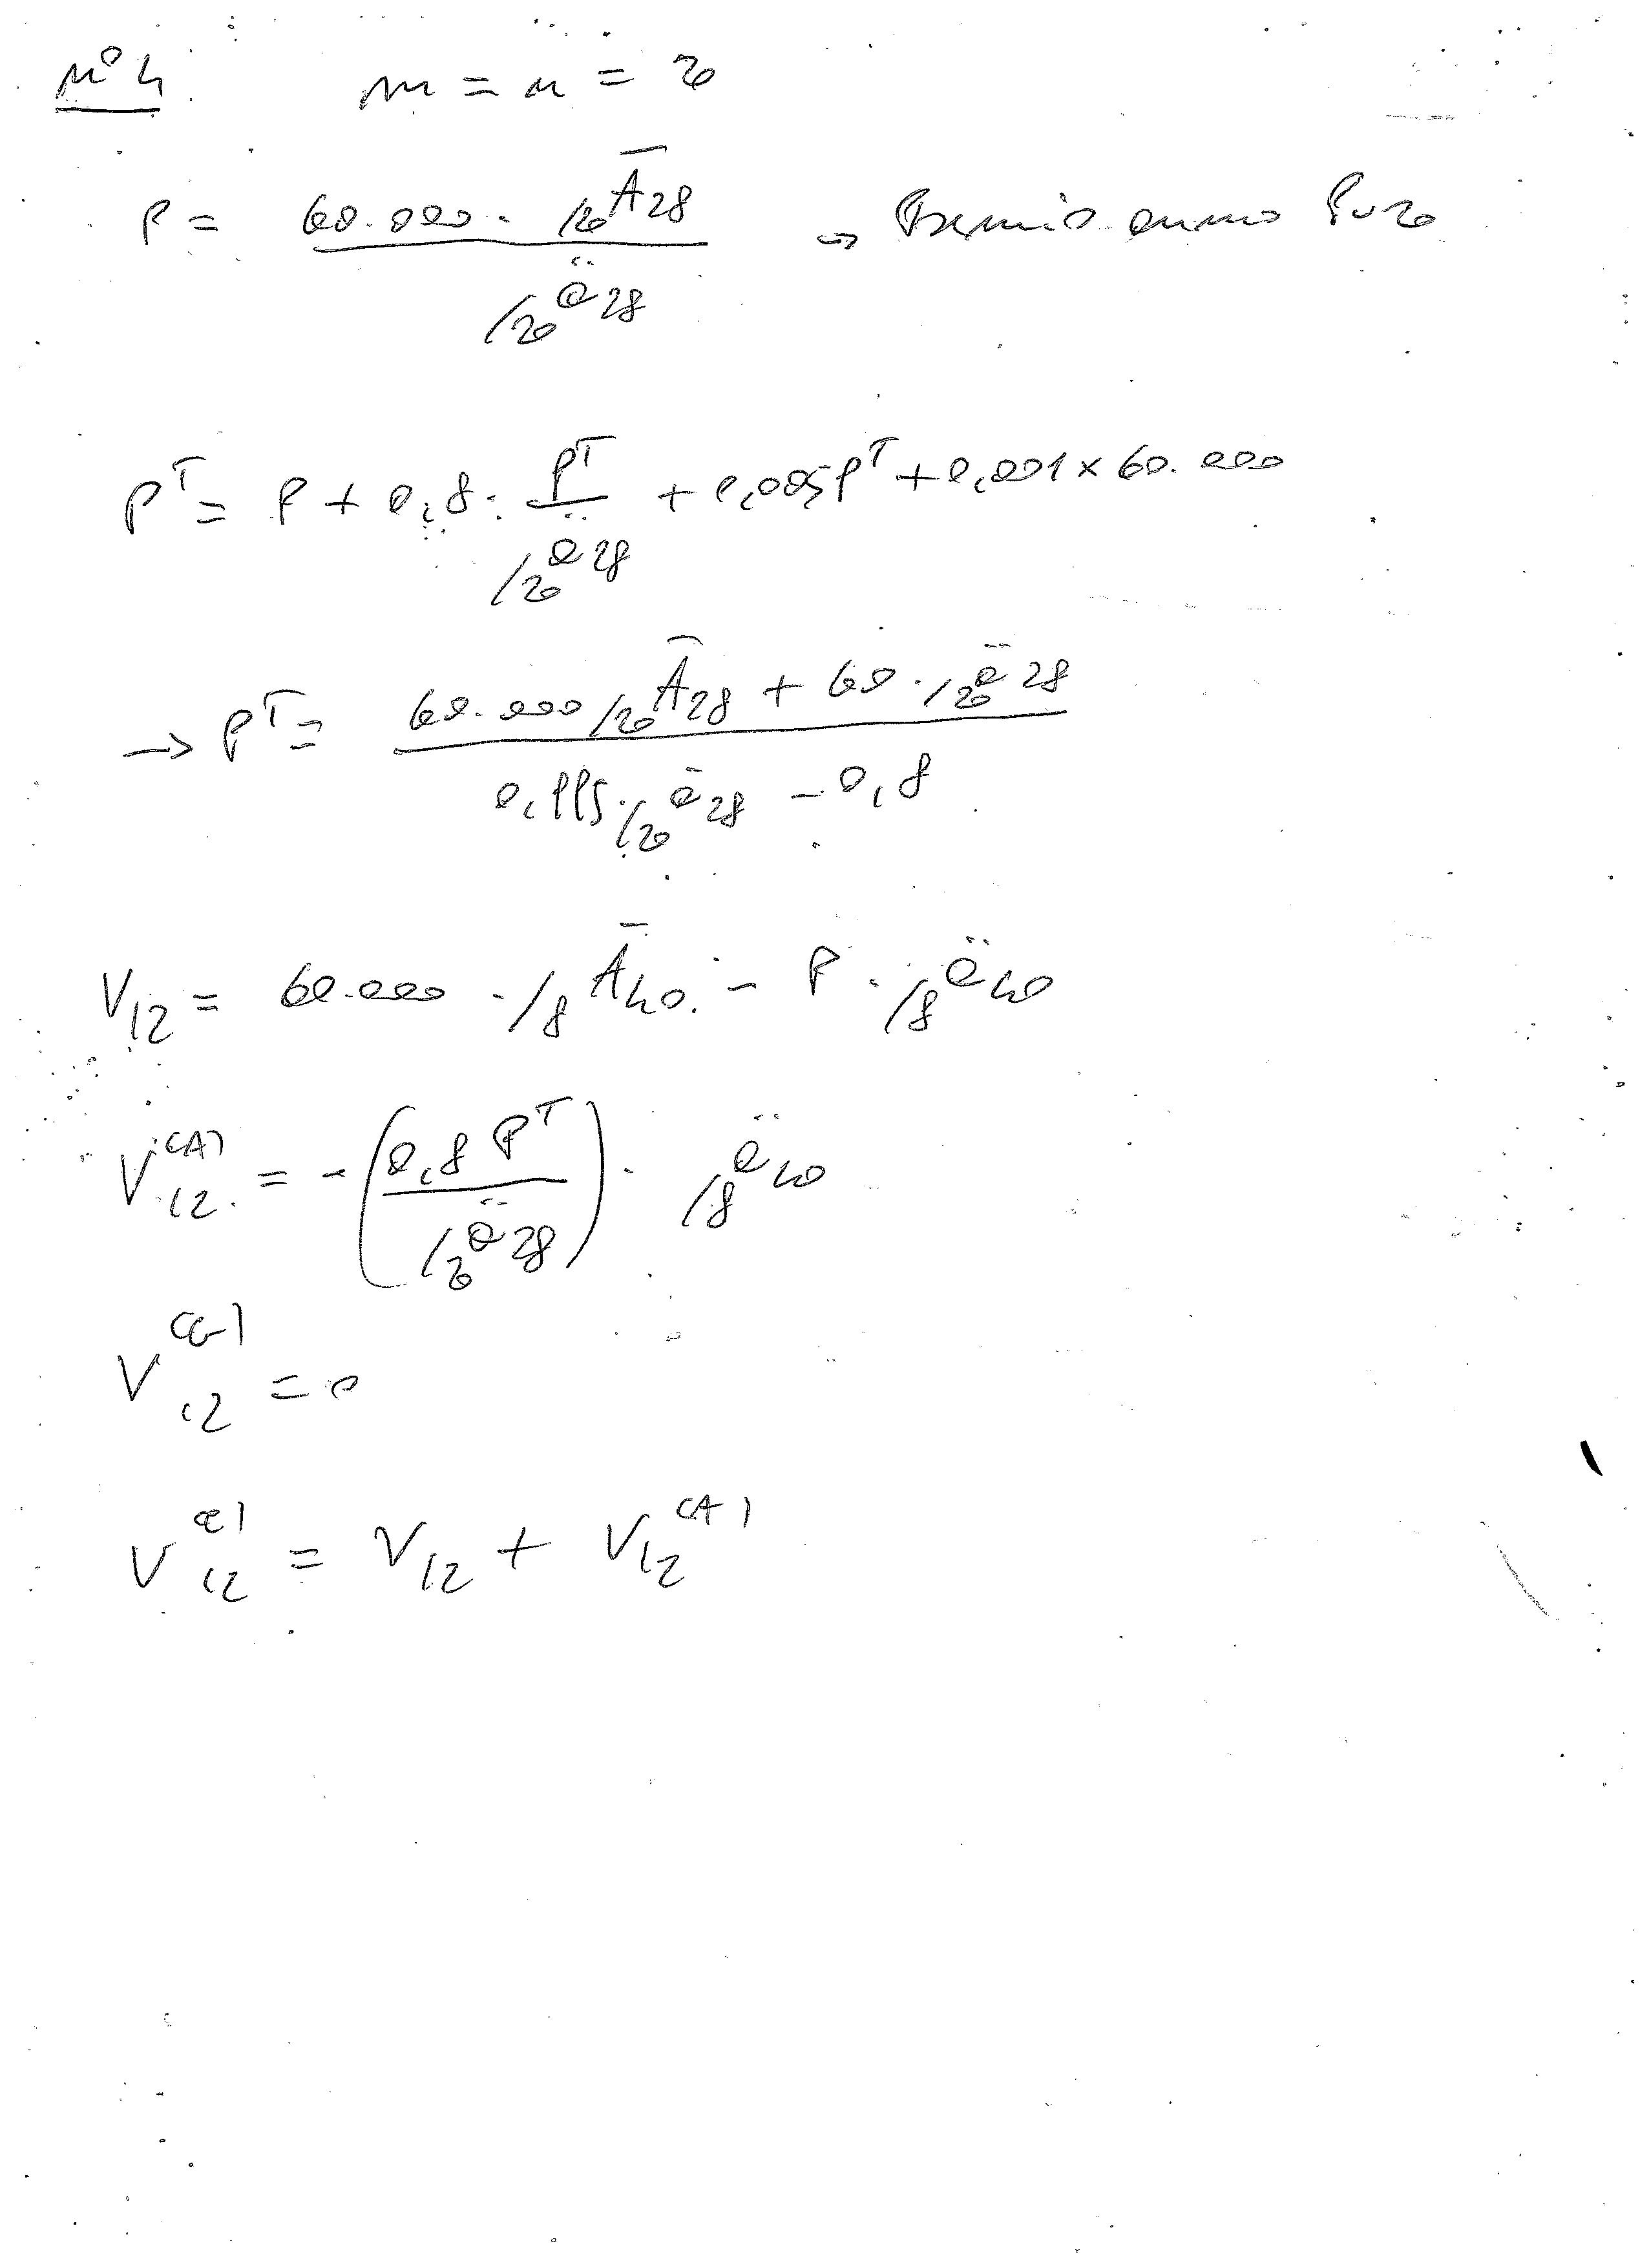 n° 4 m = n = 20
P = 60.000 · /20 Ā 28 / /20 ä 28 → Premio annuo Puro
P^T = P + 0,8 · P^T / /20 ä 28 + 0,005 P^T + 0,001 × 60.000
→ P^T = 60.000 /20 Ā 28 + 60 · /20 ä 28 / 0,995 · /20 ä 28 − 0,8
V12 = 60.000 · /8 Ā 40 − P · /8 ä 40
V12^(A) = − (0,8 P^T / /20 ä 28) · /8 ä 40
V12^(G) = 0
V12^(C) = V12 + V12^(A)